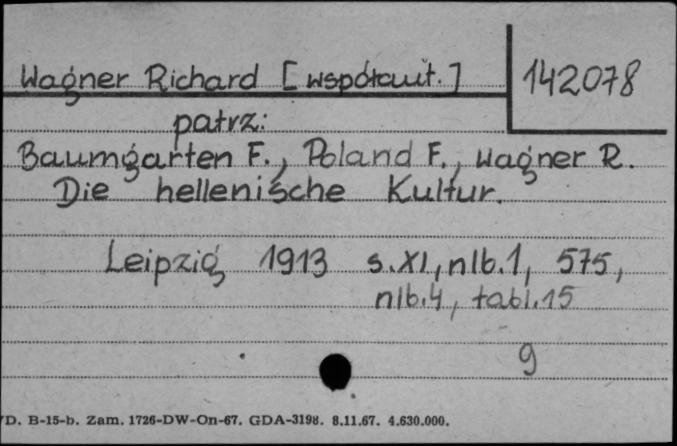 Wagner Richard [współaut.] 142078
patrz:
Baumgarten F., Poland F., Wagner R.
Die hellenische Kultur.
Leipzig 1913 s. XI, nlb. 1, 575,
nlb. 4, tabl. 15
9
D. B-15-b. Zam. 1726-DW-On-67. GDA-3198. 8.11.67. 4.630.000.